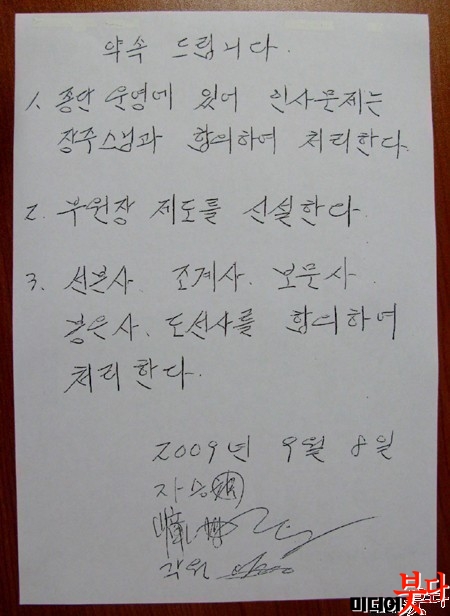 약속 드립니다.
1. 종단 운영에 있어 인사문제는
장주스님과 합의하여 처리한다.
2. 부원장 제도를 신설한다
3. 선본사. 조계사. 보문사.
봉은사. 도선사를 합의하여
처리한다.
2009년 9월 8일
자승
각원
미디어붓다